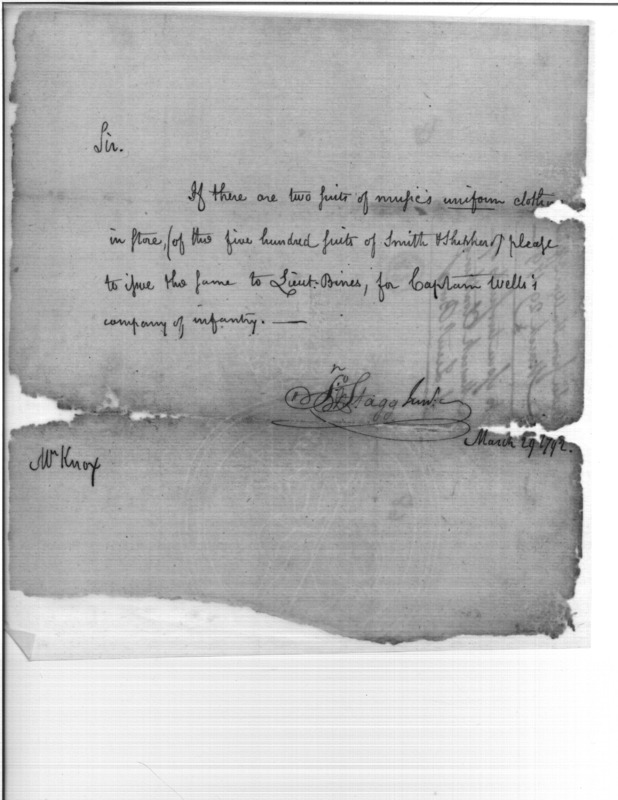 Sir.
If there are two suits of music's uniform clothes
in store, (of the five hundred suits of Smith & Shepherd) please
to issue the same to Lieut. Bines, for Captain Wells's
company of infantry. —
Jno Stagg Junr.
March 29 1792.
Mr Knox